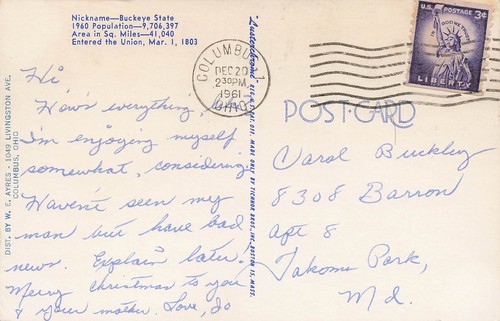 Nickname—Buckeye State
1960 Population—9,706,397
Area in Sq. Miles—41,040
Entered the Union, Mar. 1, 1803
DIST. BY W. E. AYRES - 1049 LIVINGSTON AVE.
COLUMBUS, OHIO
Hi
How's everything,
I'm enjoying myself
somewhat, considering.
Haven't seen my
man but have bad
news. Explain later.
Merry Christmas to you
& your mother. Love, Jo
COLUMBUS 1
DEC 20
2 30 PM
1961
OHIO
U.S. POSTAGE 3¢
IN GOD WE TRUST
LIBERTY
POST CARD
Carol Buckley
8308 Barron
apt 8
Takoma Park,
Md.